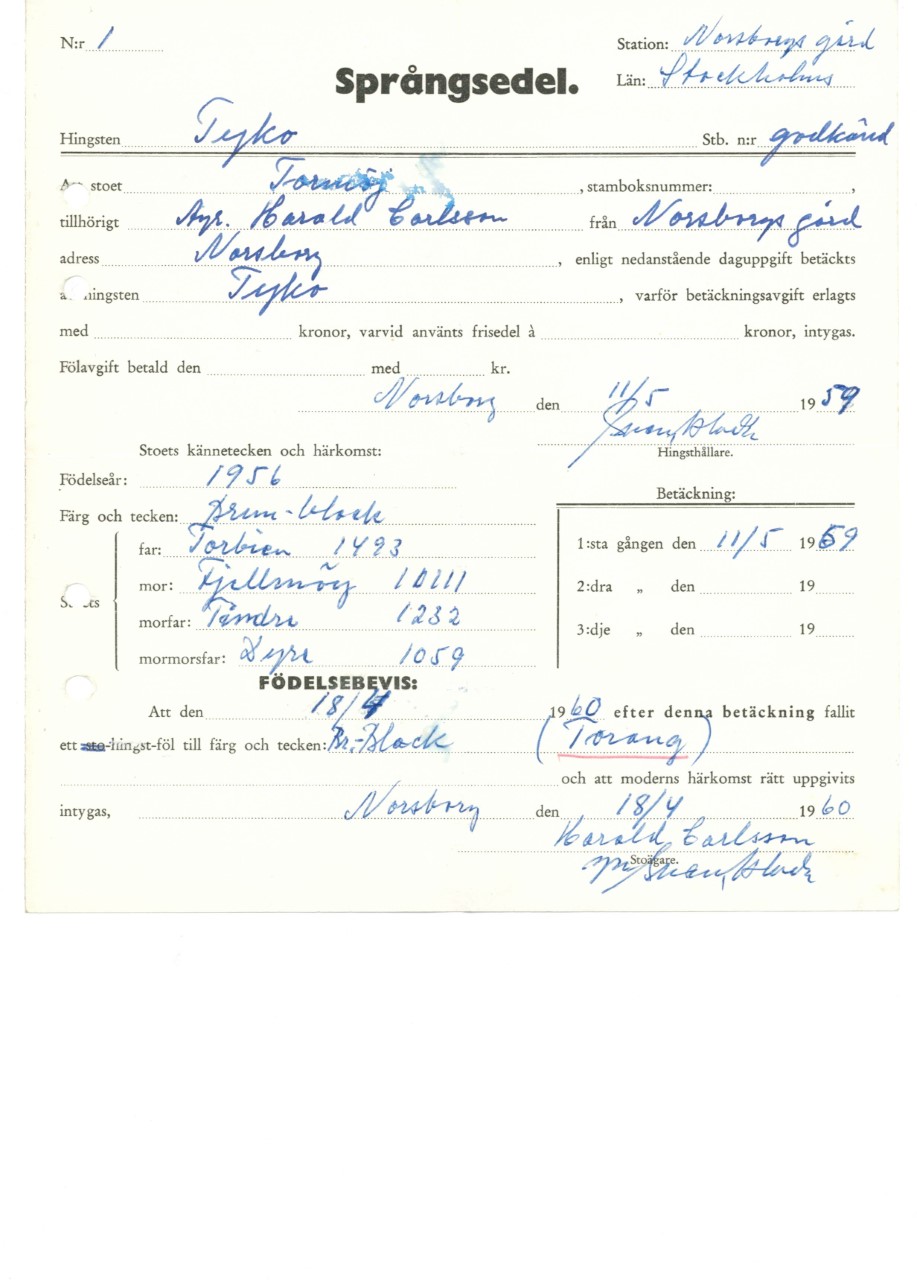 N:r 1
Station: Norsborgs gård
Språngsedel.
Län: Stockholms
Hingsten Tejko Stb. n:r godkänd
stoet Tormöj , stamboksnummer: ,
tillhörigt Agr. Harald Carlsson från Norsborgs gård
adress Norsborg , enligt nedanstående daguppgift betäckts
hingsten Tejko , varför betäckningsavgift erlagts
med kronor, varvid använts frisedel à kronor, intygas.
Fölavgift betald den med kr.
Norsborg den 11/5 1959
Hingsthållare.
Stoets kännetecken och härkomst:
Födelseår: 1956
Betäckning:
Färg och tecken: Brun-black
far: Torbien 1493
1:sta gången den 11/5 1959
mor: Fjellmöy 10111
2:dra „ den 19
morfar: Tindre 1232
3:dje „ den 19
mormorsfar: Dyre 1059
FÖDELSEBEVIS:
Att den 18/4 1960 efter denna betäckning fallit
ett sto-hingst-föl till färg och tecken: Br.-Black (Torang)
och att moderns härkomst rätt uppgivits
intygas, Norsborg den 18/4 1960
Harald Carlsson
Stoägare.